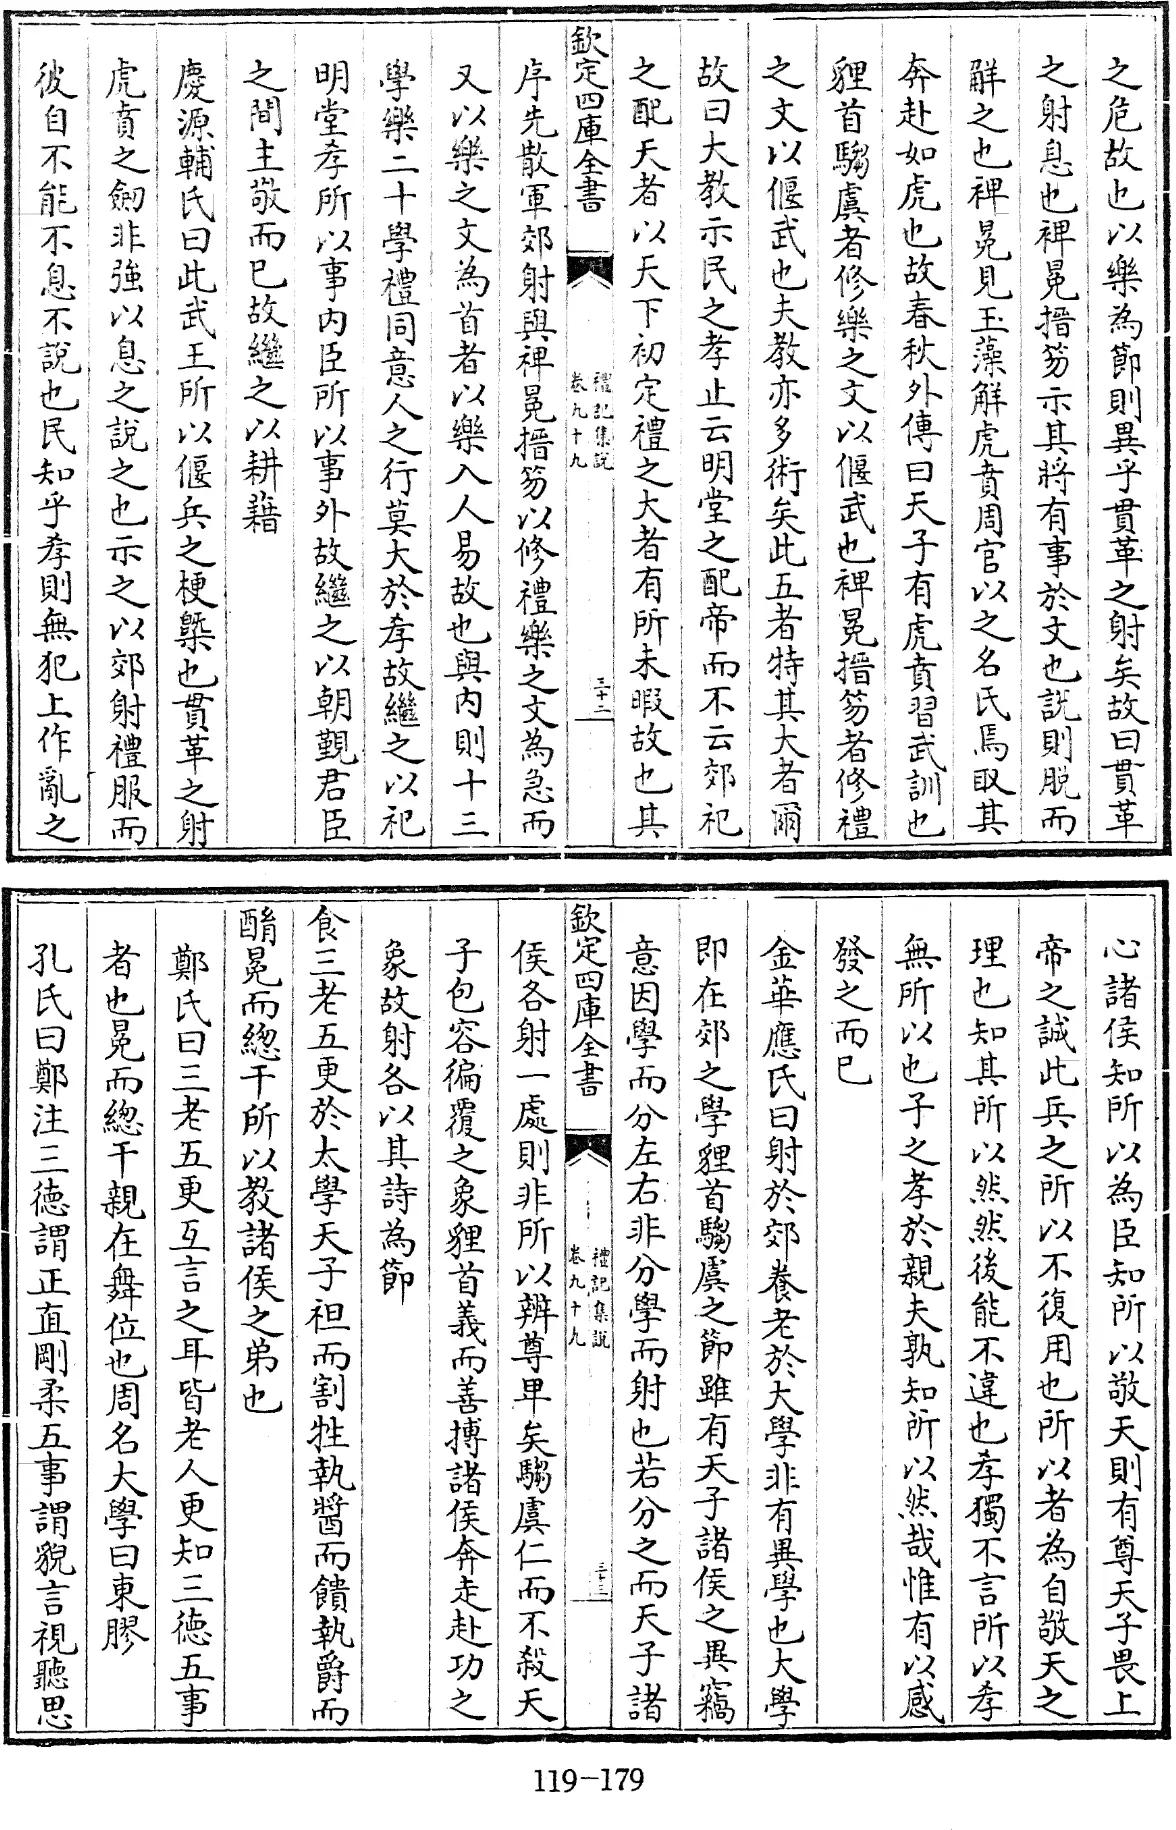 之危故也以樂為節則異乎貫革之射矣故曰貫革
之射息也裨冕搢笏示其將有事於文也説則脱而
解之也裨冕見玉藻解虎賁周官以之名氏焉取其
奔赴如虎也故春秋外傳曰天子有虎賁習武訓也
貍首騶虞者修樂之文以偃武也裨冕搢笏者修禮
之文以偃武也夫教亦多術矣此五者特其大者爾
故曰大教示民之孝止云明堂之配帝而不云郊祀
之配天者以天下初定禮之大者有所未暇故也其
欽定四庫全書
禮記集說
卷九十九
三十二
序先散軍郊射與裨冕搢笏以修禮樂之文為急而
又以樂之文為首者以樂入人易故也與内則十三
學樂二十學禮同意人之行莫大於孝故繼之以祀
明堂孝所以事内臣所以事外故繼之以朝覲君臣
之間主敬而已故繼之以耕藉
慶源輔氏曰此武王所以偃兵之梗槩也貫革之射
虎賁之劒非強以息之說之也示之以郊射禮服而
彼自不能不息不說也民知乎孝則無犯上作亂之
心諸侯知所以為臣知所以敬天則有尊天子畏上
帝之誠此兵之所以不復用也所以者為自敬天之
理也知其所以然然後能不違也孝獨不言所以孝
無所以也子之孝於親夫孰知所以然哉惟有以感
發之而已
金華應氏曰射於郊養老於大學非有異學也大學
即在郊之學貍首騶虞之節雖有天子諸侯之異竊
意因學而分左右非分學而射也若分之而天子諸
欽定四庫全書
禮記集說
卷九十九
三十三
侯各射一處則非所以辨尊卑矣騶虞仁而不殺天
子包容徧覆之象貍首義而善搏諸侯奔走赴功之
象故射各以其詩為節
食三老五更於太學天子袒而割牲執醬而饋執爵而
酳冕而緫干所以教諸侯之弟也
鄭氏曰三老五更互言之耳皆老人更知三德五事
者也冕而緫干親在舞位也周名大學曰東膠
孔氏曰鄭注三德謂正直剛柔五事謂貌言視聽思
119-179